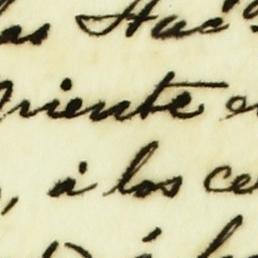 las Hac
Oriente
, á los ce